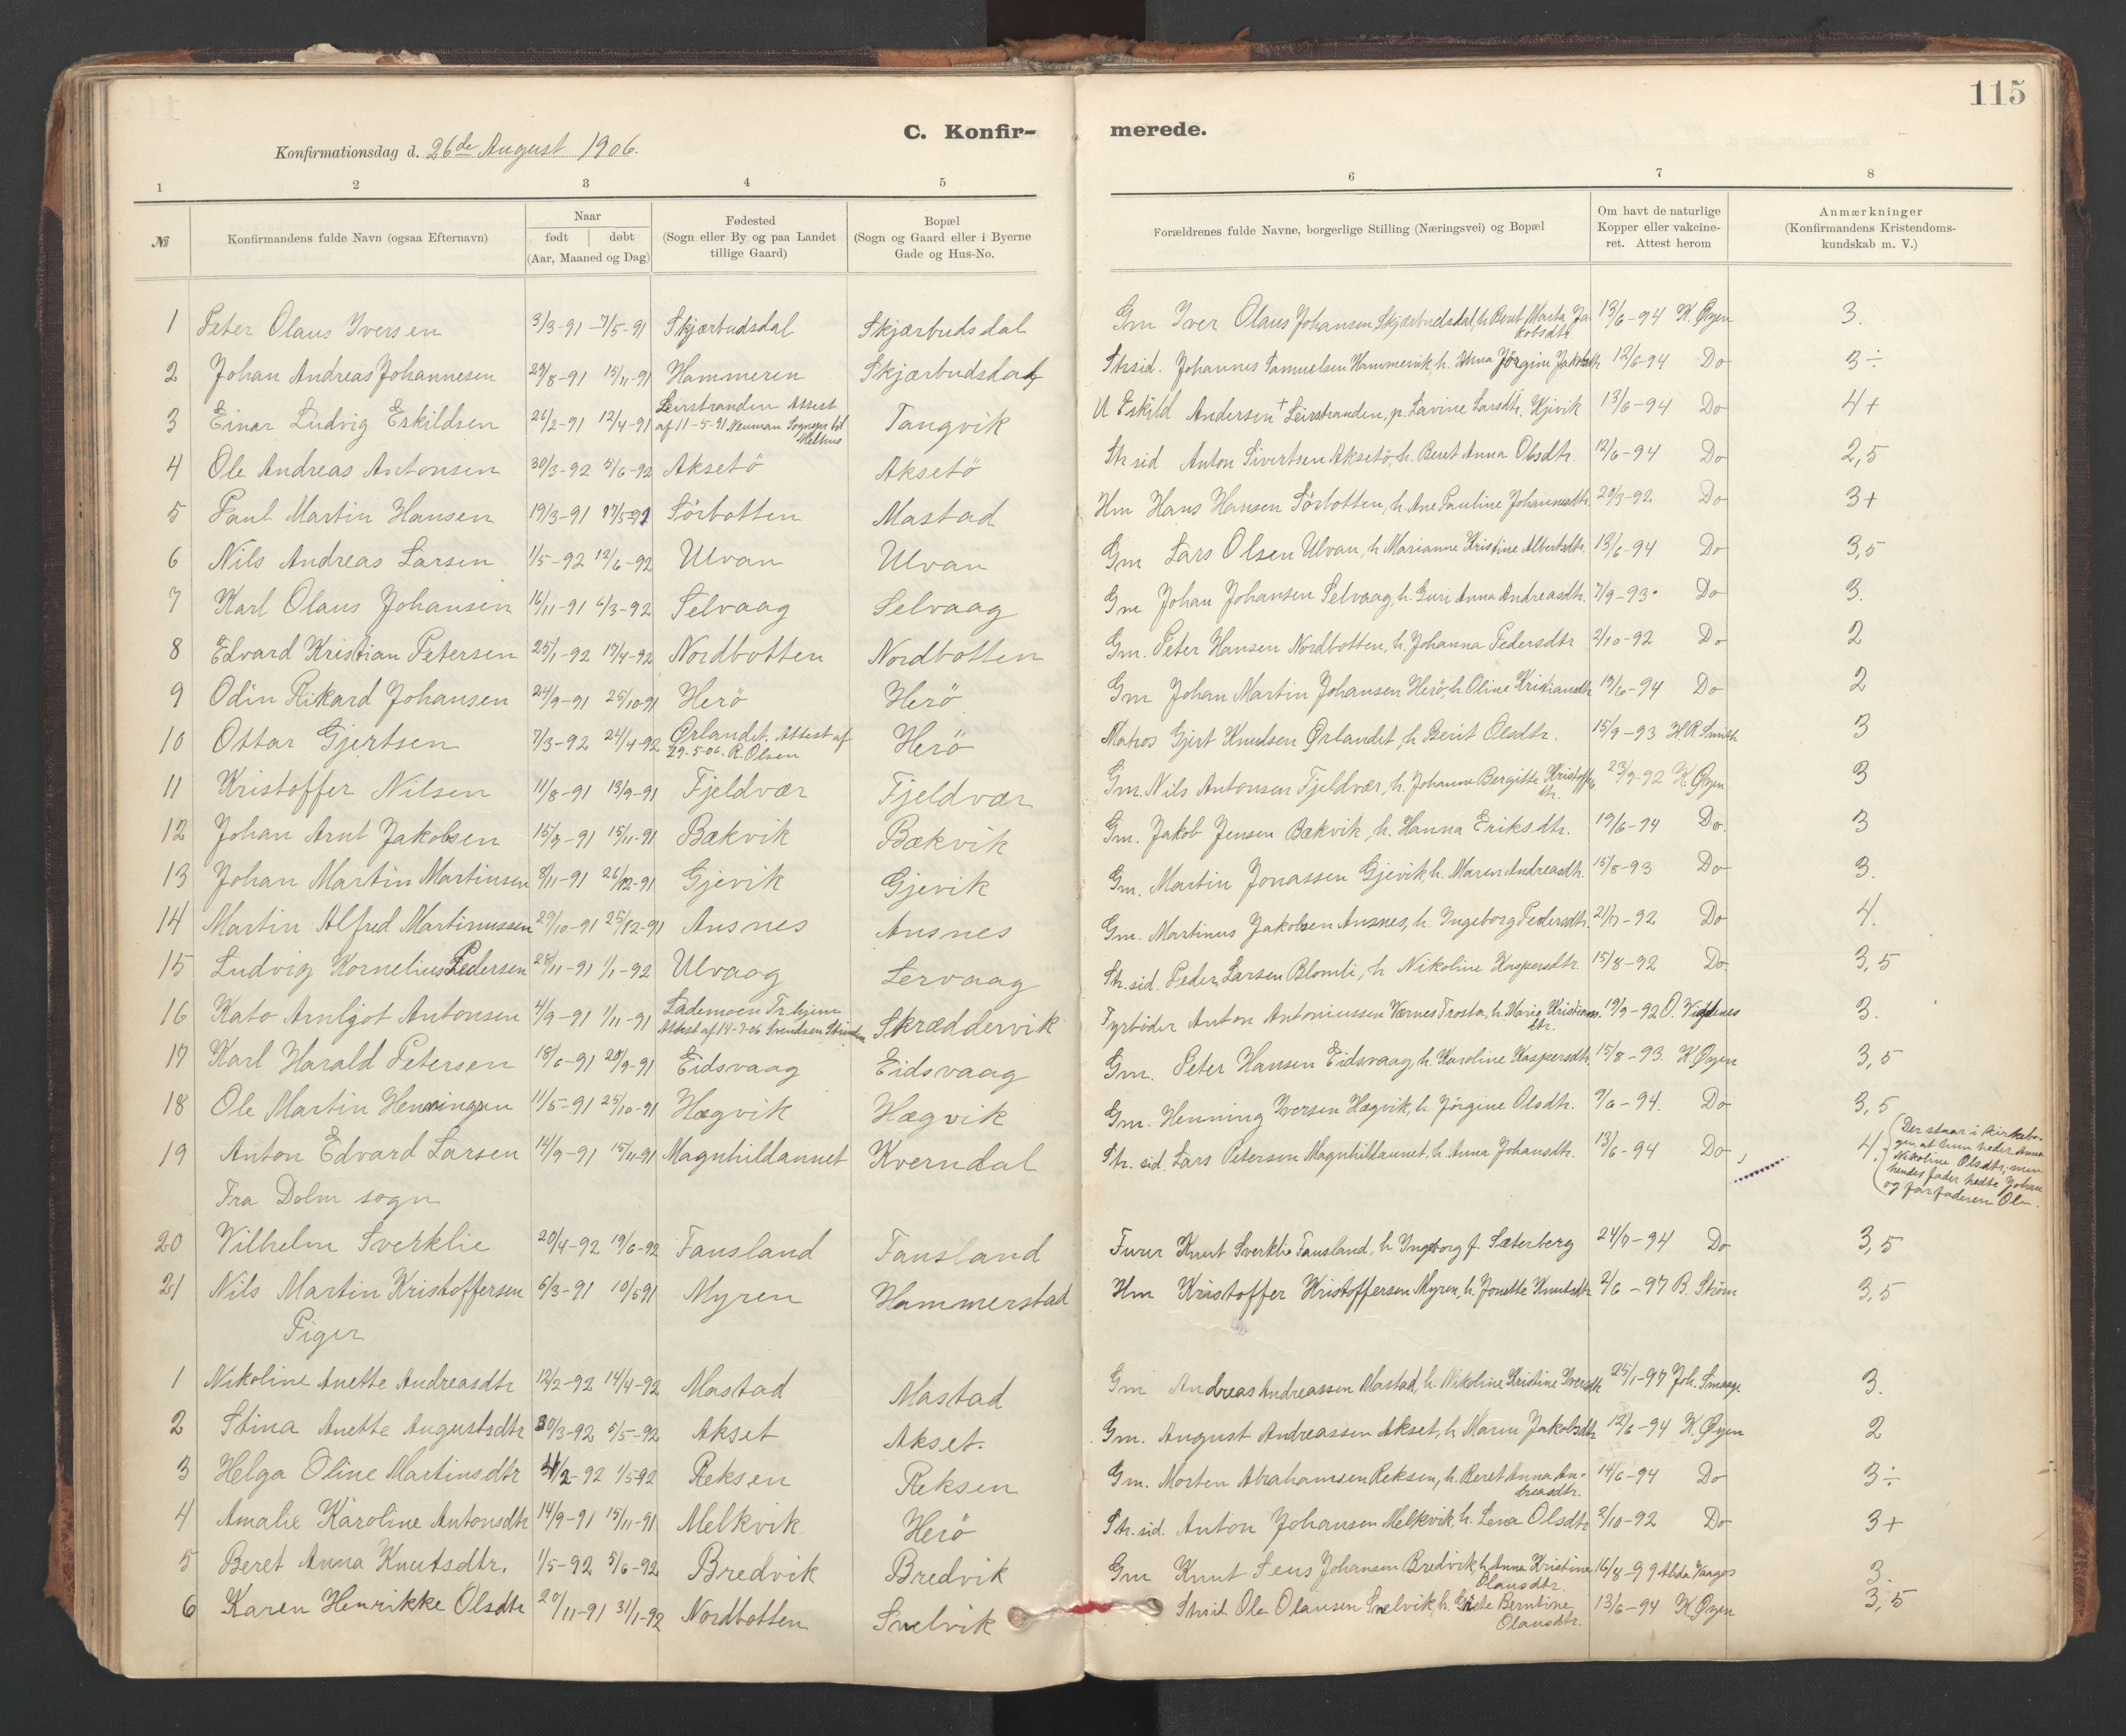 115
C. Konfir-
merede.
Konfirmationsdag d. 26de August 1906.
1 2 3 4 5 6 7 8
№ Konfirmandens fulde Navn (ogsaa Efternavn) Naar født døbt (Aar, Maaned og Dag) Fødested (Sogn eller By og paa Landet tillige Gaard) Bopæl (Sogn og Gaard eller i Byerne Gade og Hus-No. Forældrenes fulde Navne, borgerlige Stilling (Næringsvei) og Bopæl Om havt de naturlige Kopper eller vakcineret. Attest herom Anmærkninger (Konfirmandens Kristendomskundskab m. V.)
1 Peter Olaus Iversen 3/3-91 7/5-91 Skjærbudsdal Skjærbudsdal Gm Iver Olaus Johansen Skjærbudsdal, h. Berit Marta Jakobsdtr 13/6-94 K. Øyen 3.
2 Johan Andreas Johannesen 29/8-91 15/11-91 Hammeren Skjærbudsdal Strsid. Johannes Samuelsen Hammervik, h. Anna Jørgine Jakobsdtr 12/6-94 Do 3÷
3 Einar Ludvig Eskildsen 26/2-91 12/4-91 Leirstranden Attest af 11-5-91 Neuman Sognepr. til Melhus Tangvik U Eskild Andersen† Leirstranden, p. Lavine Larsdtr. Kjivik 13/6-94 Do 4+
4 Ole Andreas Antonsen 30/3-92 5/6-92 Aksetö Aksetö Str sid Anton Sivertsen Aksetö, h. Beret Anna Olsdtr. 12/6-94 Do 2,5
5 Paul Martin Hansen 19/3-91 17/5-91 Sörbotten Mastad Hm Hans Hansen Sörbotten, h. Ane Pauline Johannesdtr. 20/3-92 Do 3+
6 Nils Andreas Larsen 1/5-92 12/6-92 Ulvan Ulvan Gm Lars Olsen Ulvan, h Marianne Kristine Albertsdtr. 13/6-94 Do 3,5
7 Karl Olaus Johansen 16/11-91 6/3-92 Selvaag Selvaag Gm Johan Johansen Selvaag, h. Guri Anna Andreasdtr. 7/9-93 Do 3.
8 Edvard Kristian Petersen 25/1-92 17/4-92 Nordbotten Nordbotten Gm. Peter Hansen Nordbotten, h. Johanna Pedersdtr 2/10-92 Do 2
9 Odin Rikard Johansen 24/9-91 25/10-91 Herö Herö Gm Johan Martin Johansen Herö, h. Oline Kristiansdtr 19/6-94 Do 2
10 Ottar Gjertsen 7/3-92 24/4-92 Ørlandet. Attest af 29-5-06. R. Olsen Herö Matros Gjert Knudsen Ørlandet, h Berit Olsdtr. 15/9-93 H.R. Smith 3
11 Kristoffer Nilsen 11/8-91 13/9-91 Fjeldvær Fjeldvær Gm. Nils Antonsen Fjeldvær, h. Johanne Bergitte Kristoffersdtr. 23/9-92 K. Øyen 3
12 Johan Arnt Jakobsen 15/9-91 15/11-91 Bækvik Bækvik Gm. Jakob Jensen Bækvik, h. Hanna Eriksdtr. 19/6-94 Do. 3
13 Johan Martin Martinsen 8/11-91 26/12-91 Gjevik Gjevik Gm. Martin Jonassen Gjevik, h. Maren Andreasdtr. 15/8-93 Do 3.
14 Martin Alfred Martinussen 29/10-91 25/12-91 Ansnes Ansnes Gm. Martinus Jakobsen Ansnes, h. Ingeborg Pedersdtr. 21/7-92 Do 4.
15 Ludvig Kornelius Pedersen 28/11-91 1/1-92 Ulvaag Lervaag Str. sid. Peder Larsen Blomli, h Nikoline Kaspersdtr. 15/8-92 Do. 3,5
16 Kato Arnljot Antonsen 4/9-91 1/11-91 Lademoen Tr.hjem Attest af 14-7-06 Svendsen Strinden Skræddervik Fyrbøder Anton Antoniussen Værnes Trosta, h. Marie Kristiansdtr. 19/9-92 O. Vigdenes 3.
17 Karl Harald Petersen 18/6-91 20/9-91 Eidsvaag Eidsvaag Gm. Peter Hansen Eidsvaag, h. Karoline Kaspersdtr. 15/8-93. K. Øyen 3,5
18 Ole Martin Henningsen 11/5-91 25/10-91 Hægvik Hægvik Gm. Henning Iversen Hægvik, h. Jörgine Olsdtr. 9/6-94. Do 3,5
19 Anton Edvard Larsen 14/9-91 15/11-91 Magnhildaunet Kverndal Str. sid. Lars Petersen Magnhildaunet, h. Anna Johansdtr. 13/6-94 Do 4.
Der staar i kirkebogen, at hun heder Anna Nikoline Olsdtr; men hendes fader hedte Johan og farfaderen Ole.
Fra Dolm sogn
20 Vilhelm Sverklie 20/4-92 19/6-92 Fausland Fausland Furer Knut Sverklie Fausland, h Ingeborg f. Sæterberg 24/7-94 Do 3,5
21 Nils Martin Kristoffersen 6/3-91 10/5 91 Myren Hammerstad Hm Kristoffer Kristoffersen Myren, h. Jonette Knutsdtr 2/6-97 B. Ström 3,5
Piger
1 Nikoline Anette Andreasdtr 12/2-92 14/4-92 Mastad Mastad Gm Andreas Andreassen Mastad, h. Nikoline Kristine Iversdtr 25/1-97 Joh. 3.
2 Stina Anette Augustsdtr 30/3-92 5/5-92 Akset Akset. Gm. August Andreassen Akset, h Maren Jakobsdtr 12/6-94 K. Øyen 2
3 Helga Oline Martinsdtr 4/2-92 1/5 92 Reksen Reksen Gm. Morten Abrahamsen Reksen, h. Beret Anna Andreasdtr. 14/6-94 Do 3÷
4 Amalie Karoline Antonsdtr 14/9-91 15/11-91 Melkvik Herö Str. sid. Anton Johansen Melkvik, h. Lena Olsdtr 2/10-92 Do 3+
5 Beret Anna Knutsdtr. 1/5-92 5/6-92 Bredvik Bredvik Gm Knut Jens Johansen Bredvik, h. Anna Kristine Olausdtr. 16/8-99 Alda Vaages 3.
6 Karen Henrikke Olsdtr 20/11-91 31/1-92 Nordbotten Snelvik Strsid. Ole Olausen Snelvik, h. Grete Berntine Olausdtr. 13/6-94 K. Øyen 3,5